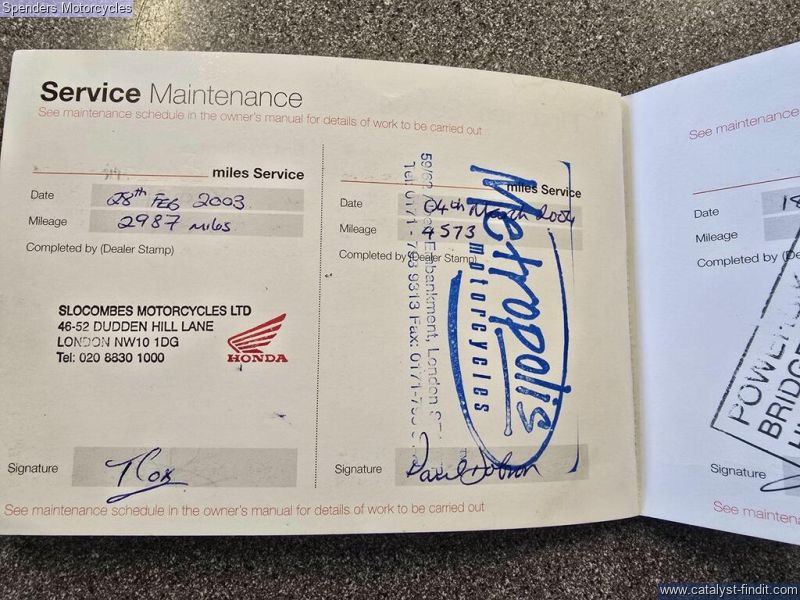 Spenders Motorcycles
Service Maintenance
See maintenance schedule in the owner's manual for details of work to be carried out
miles Service
Date 28th FEB 2003
Mileage 2987 miles
Completed by (Dealer Stamp)
SLOCOMBES MOTORCYCLES LTD
46-52 DUDDEN HILL LANE
LONDON NW10 1DG
Tel: 020 8830 1000
HONDA
Signature T Cox
miles Service
Date 04th March 2004
Mileage 4573
Completed by (Dealer Stamp)
Metropolis
motorcycles
Embankment, London
Tel: 0171-793 9313 Fax: 0171-793
Signature
See maintenance schedule in the owner's manual for details of work to be carried out
See maintenance
Date 18
Mileage
Completed by (De
BRIDGE
Signature
See maintenan
www.catalyst-findit.com